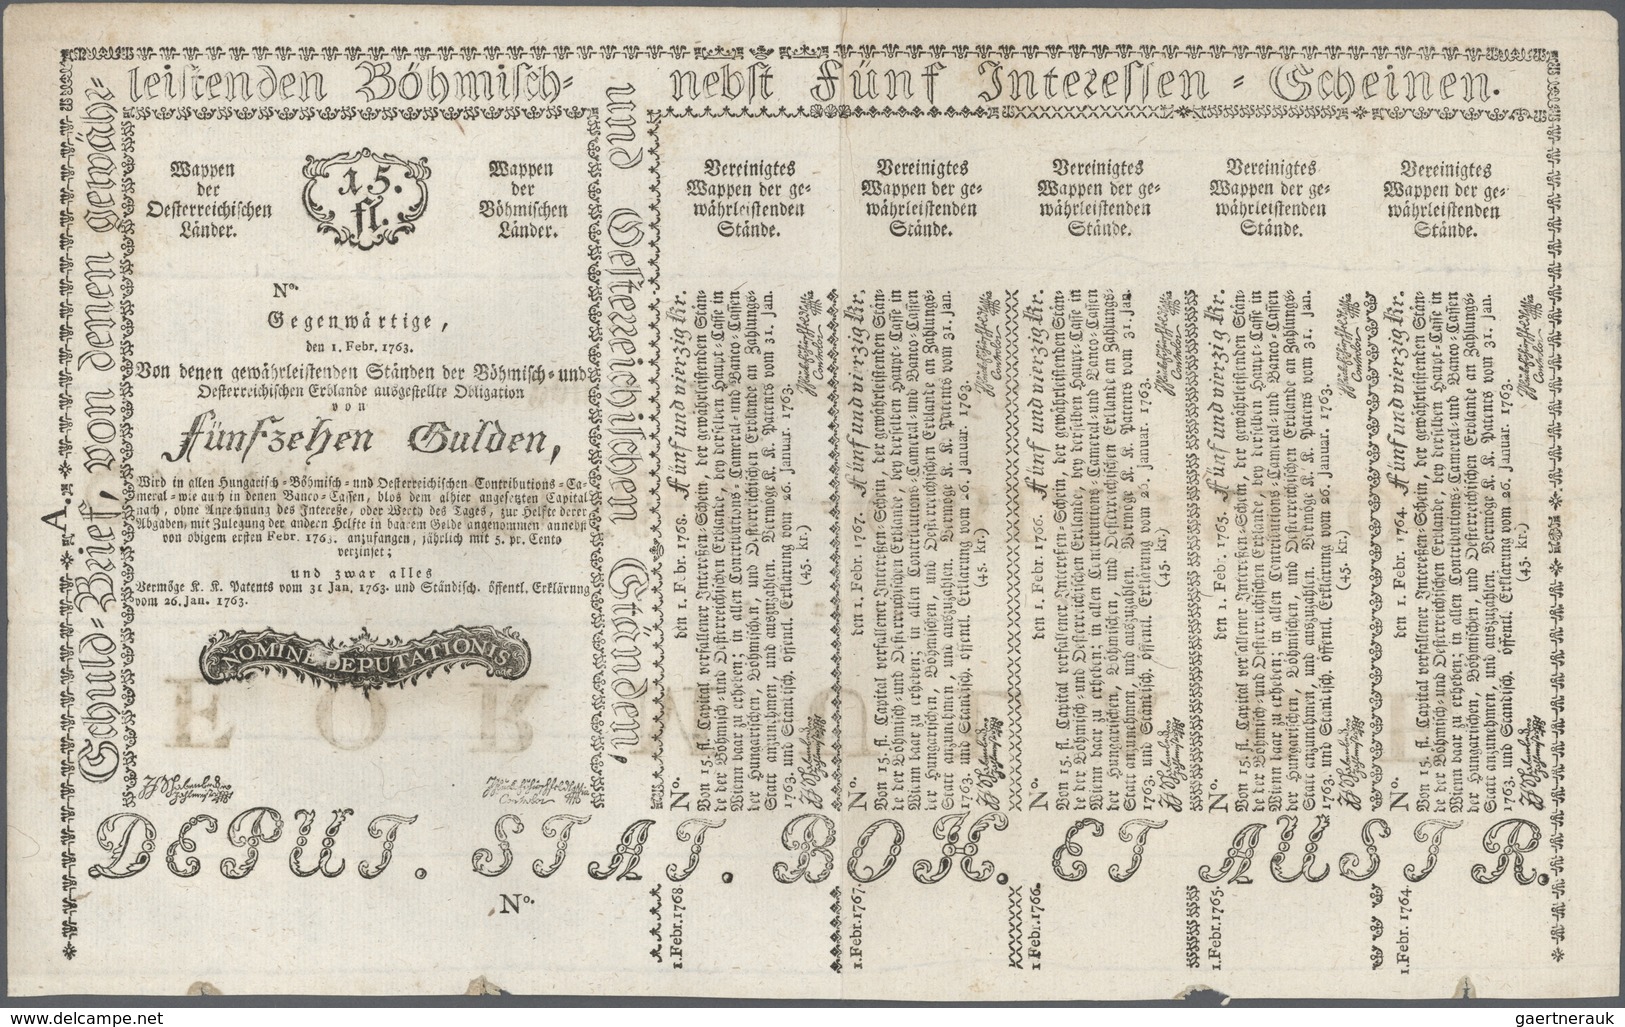 leistenden Böhmisch- nebst Fünf Interessen-Scheinen.
A. Schuld-Brief, von denen gewähr-
und Oesterreichischen Ständen,
Wappen
der
Oesterreichischen
Länder.
15.
fl.
Wappen
der
Böhmischen
Länder.
No.
Gegenwärtige,
den 1. Febr. 1763.
Von denen gewährleistenden Ständen der Böhmisch- und
Oesterreichischen Erblande ausgestellte Obligation
von
Fünfzehen Gulden,
Wird in allen Hungarisch-Böhmisch- und Oesterreichischen Contributions-Ca-
meral- wie auch in denen Banco-Cassen, blos dem alhier angesetzten Capital
nach, ohne Anrechnung des Intereße, oder Werth des Tages, zur Helfte derer
Abgaben, mit Zulegung der andern Helfte in baarem Gelde angenommen annebst
von obigem ersten Febr. 1763. anzufangen, jährlich mit 5. pr. Cento
verzinset;
und zwar alles
Vermöge K. K. Patents vom 31 Jan. 1763. und Ständisch. öffentl. Erklärung
vom 26. Jan. 1763.
NOMINE DEPUTATIONIS
Vereinigtes
Wappen der ge-
währleistenden
Stände.
Vereinigtes
Wappen der ge-
währleistenden
Stände.
Vereinigtes
Wappen der ge-
währleistenden
Stände.
Vereinigtes
Wappen der ge-
währleistenden
Stände.
Vereinigtes
Wappen der ge-
währleistenden
Stände.
No. den 1. Febr. 1768. Fünf und vierzig kr.
Von 15. fl. Capital verfallener Interessen-Schein, der gewährleistenden Stän-
de der Böhmisch- und Oesterreichischen Erblande, bey derselben Haupt-Casse in
Wienn baar zu erheben; in allen Contributions-Cameral- und Banco-Cassen
der Hungarischen, Böhmischen, und Oesterreichischen Erblande an Zahlungs-
Statt anzunehmen, und auszuzahlen. Vermöge K. K. Patents vom 31. Jan.
1763. und Ständisch. öffentl. Erklärung vom 26. Januar. 1763.
(45. kr.)
No. den 1. Febr. 1767. Fünf und vierzig kr.
Von 15. fl. Capital verfallener Interessen-Schein, der gewährleistenden Stän-
de der Böhmisch- und Oesterreichischen Erblande, bey derselben Haupt-Casse in
Wienn baar zu erheben; in allen Contributions-Cameral- und Banco-Cassen
der Hungarischen, Böhmischen, und Oesterreichischen Erblande an Zahlungs-
Statt anzunehmen, und auszuzahlen. Vermöge K. K. Patents vom 31. Jan.
1763. und Ständisch. öffentl. Erklärung vom 26. Januar. 1763.
(45. kr.)
No. den 1. Febr. 1766. Fünf und vierzig kr.
Von 15. fl. Capital verfallener Interessen-Schein, der gewährleistenden Stän-
de der Böhmisch- und Oesterreichischen Erblande, bey derselben Haupt-Casse in
Wienn baar zu erheben; in allen Contributions-Cameral- und Banco-Cassen
der Hungarischen, Böhmischen, und Oesterreichischen Erblande an Zahlungs-
Statt anzunehmen, und auszuzahlen. Vermöge K. K. Patents vom 31. Jan.
1763. und Ständisch. öffentl. Erklärung vom 26. Januar. 1763.
(45. kr.)
No. den 1. Febr. 1765. Fünf und vierzig kr.
Von 15. fl. Capital verfallener Interessen-Schein, der gewährleistenden Stän-
de der Böhmisch- und Oesterreichischen Erblande, bey derselben Haupt-Casse in
Wienn baar zu erheben; in allen Contributions-Cameral- und Banco-Cassen
der Hungarischen, Böhmischen, und Oesterreichischen Erblande an Zahlungs-
Statt anzunehmen, und auszuzahlen. Vermöge K. K. Patents vom 31. Jan.
1763. und Ständisch. öffentl. Erklärung vom 26. Januar. 1763.
(45. kr.)
No. den 1. Febr. 1764. Fünf und vierzig kr.
Von 15. fl. Capital verfallener Interessen-Schein, der gewährleistenden Stän-
de der Böhmisch- und Oesterreichischen Erblande, bey derselben Haupt-Casse in
Wienn baar zu erheben; in allen Contributions-Cameral- und Banco-Cassen
der Hungarischen, Böhmischen, und Oesterreichischen Erblande an Zahlungs-
Statt anzunehmen, und auszuzahlen. Vermöge K. K. Patents vom 31. Jan.
1763. und Ständisch. öffentl. Erklärung vom 26. Januar. 1763.
(45. kr.)
DEPUT. STAT. BOH. ET AUSTR.
No.
1. Febr. 1768.
1. Febr. 1767.
1. Febr. 1766.
1. Febr. 1765.
1. Febr. 1764.
www.delcampe.net
gaertnerauk